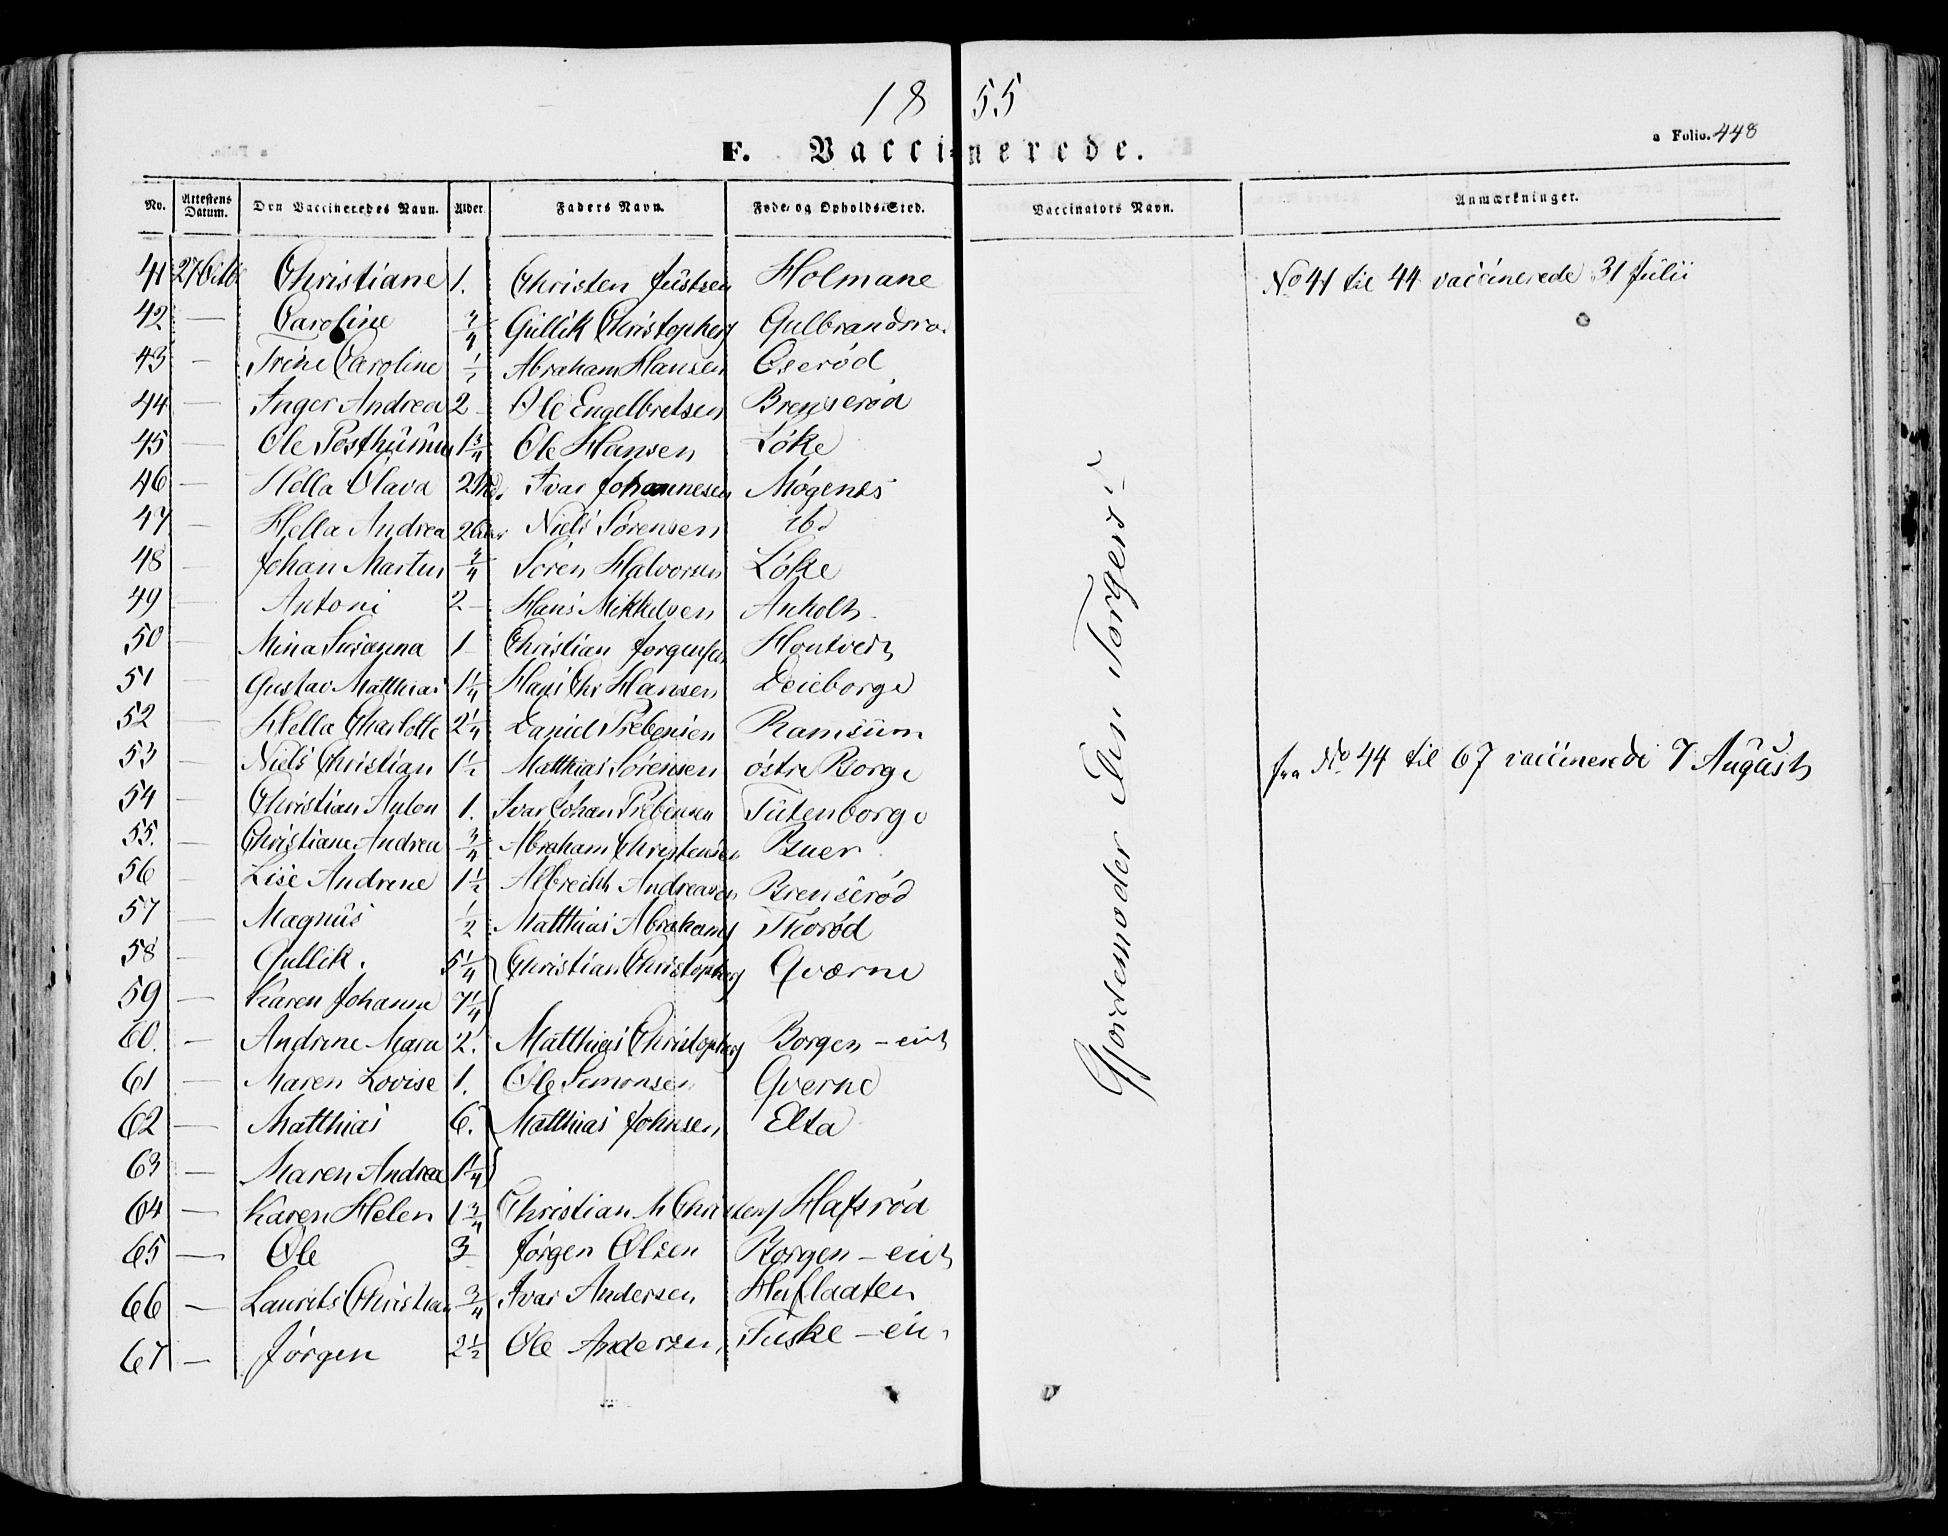 1855
a Folio. 448
F. Vaccinerede.
No. Attestens Datum. Den Vaccineredes Navn. Alder Faders Navn. Føde- og Opholds-Sted. Vaccinators Navn. Anmærkninger.
41 27 Christiane 1. Christen Justsen Holmane No 41 til 44 vaccinerede 31 Julii
42 — Caroline 3/4 Gullik Christophers Gulbrandsrø
43 — Trine Caroline 1/2 Abraham Hansen Oserød
44 — Inger Andrea 2 – Ole Engelbretsen Brenserød
45 — Ole Posthumus 1 3/4 Ole Hansen Løke
46 — Hella Olava 2 Ivar Johannesen Møgenes
47 — Hella Andrea 2 Niels Sørensen ibd
48 — Johan Martin 3/4 Søren Halvorsen Løke
49 — Antoni 2 – Hans Mikkelsen Anholt
50 — Mina Susanna 1 – Christian Jørgensen Hontvedt
51 — Gustav Matthias 1 1/4 Hans Chr Hansen Deieborge
52 — Hella Charlotte 2 1/4 Daniel Prebensen Ramsum
53 — Niels Christian 1 1/2 Matthias Sørensen østre Borge fra No 44 til 67 vaccinerede 7 August
54 — Christian Anton 1. Ivar Johan Prebensen Tutenborge
55. — Christiane Andrea 3/4 Abraham Christensen Buer
56 — Lise Andrine 1 1/2 Albrecht Andreasen Brenserød
57 — Magnus 1/2 Matthias Abrahams Thorød
58 — Gullik. 5 1/4 } Christian Christophers Qværne
59 — Karen Johanne 7 1/4 }
60. — Andrine Maria 2. Matthias Christophers Borgen – eie
61 — Maren Lovise 1. Ole Simonsen Qverne
62 — Matthias 6. } Matthias Johnsen Elta
63 — Maren Andrea 1 1/4 }
64 — Karen Helen 1 3/4 Christian M Christens Hafsrød
65 — Ole 3 – Jørgen Olsen Borgen – eie
66 — Laurits Christian 3/4 Ivar Andersen Haslaaten
67 — Jørgen 2 1/2 Ole Andersen Fuske – eie
Gjordemoder Torgers